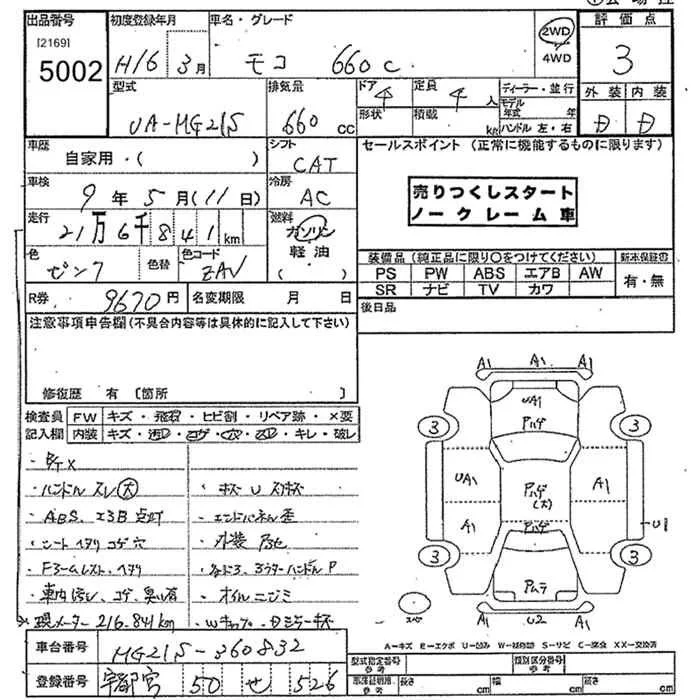 出品番号
[2169]
5002
初度登録年月
H16年 3月
車名・グレード
モコ 660 C
2WD
4WD
評価点
3
外装 内装
D D
型式
UA-MG21S
排気量
660 cc
ドア 4
形状
定員 4 人
積載
ディーラー・並行
モデル年式 年
ハンドル 左・右
車歴
自家用・( )
シフト
CAT
車検
9年 5月 (11日)
冷房
AC
走行
21万6千841km
燃料
ガソリン
軽油
( )
色
ピンク
色替
色コード
ZAV
R券 9670円
名変期限 月 日
セールスポイント (正常に機能するものに限ります)
売りつくしスタート
ノークレーム車
装備品(純正品に限り○をつけてください)
PS PW ABS エアB AW
SR ナビ TV カワ
新車保証書
有・無
後日品
注意事項申告欄(不具合内容等は具体的に記入して下さい)
修復歴 有 〔箇所 〕
検査員
記入欄
FW キズ・飛石・ヒビ割・リペア跡・×要
内装 キズ・汚レ・コゲ・穴・スレ・キレ・破レ
・ハンドル スレ(大)
・ABS、エアB 点灯
・シート ヘタリ コゲ 穴
・車内汚レ、コゲ、臭い有
・現メーター 216.841km
・キズ U スリキズ
・外装 A
・オイルニジミ
車台番号 MG21S-360832
登録番号 宇都宮 50 せ 526
A1 A1 A1
UA1
Pハゲ
3 3
UA1
Pハゲ
(大)
A1
A1
Pハゲ
U1
3 3
Pムラ
スペア
A1 U2 A1
A=キズ E=エクボ U=凹み W=補修跡 S=サビ C=腐食 XX=交換済
型式指定番号
参考
類別区分番号
参考
参考
長さ cm
幅 cm
高さ cm